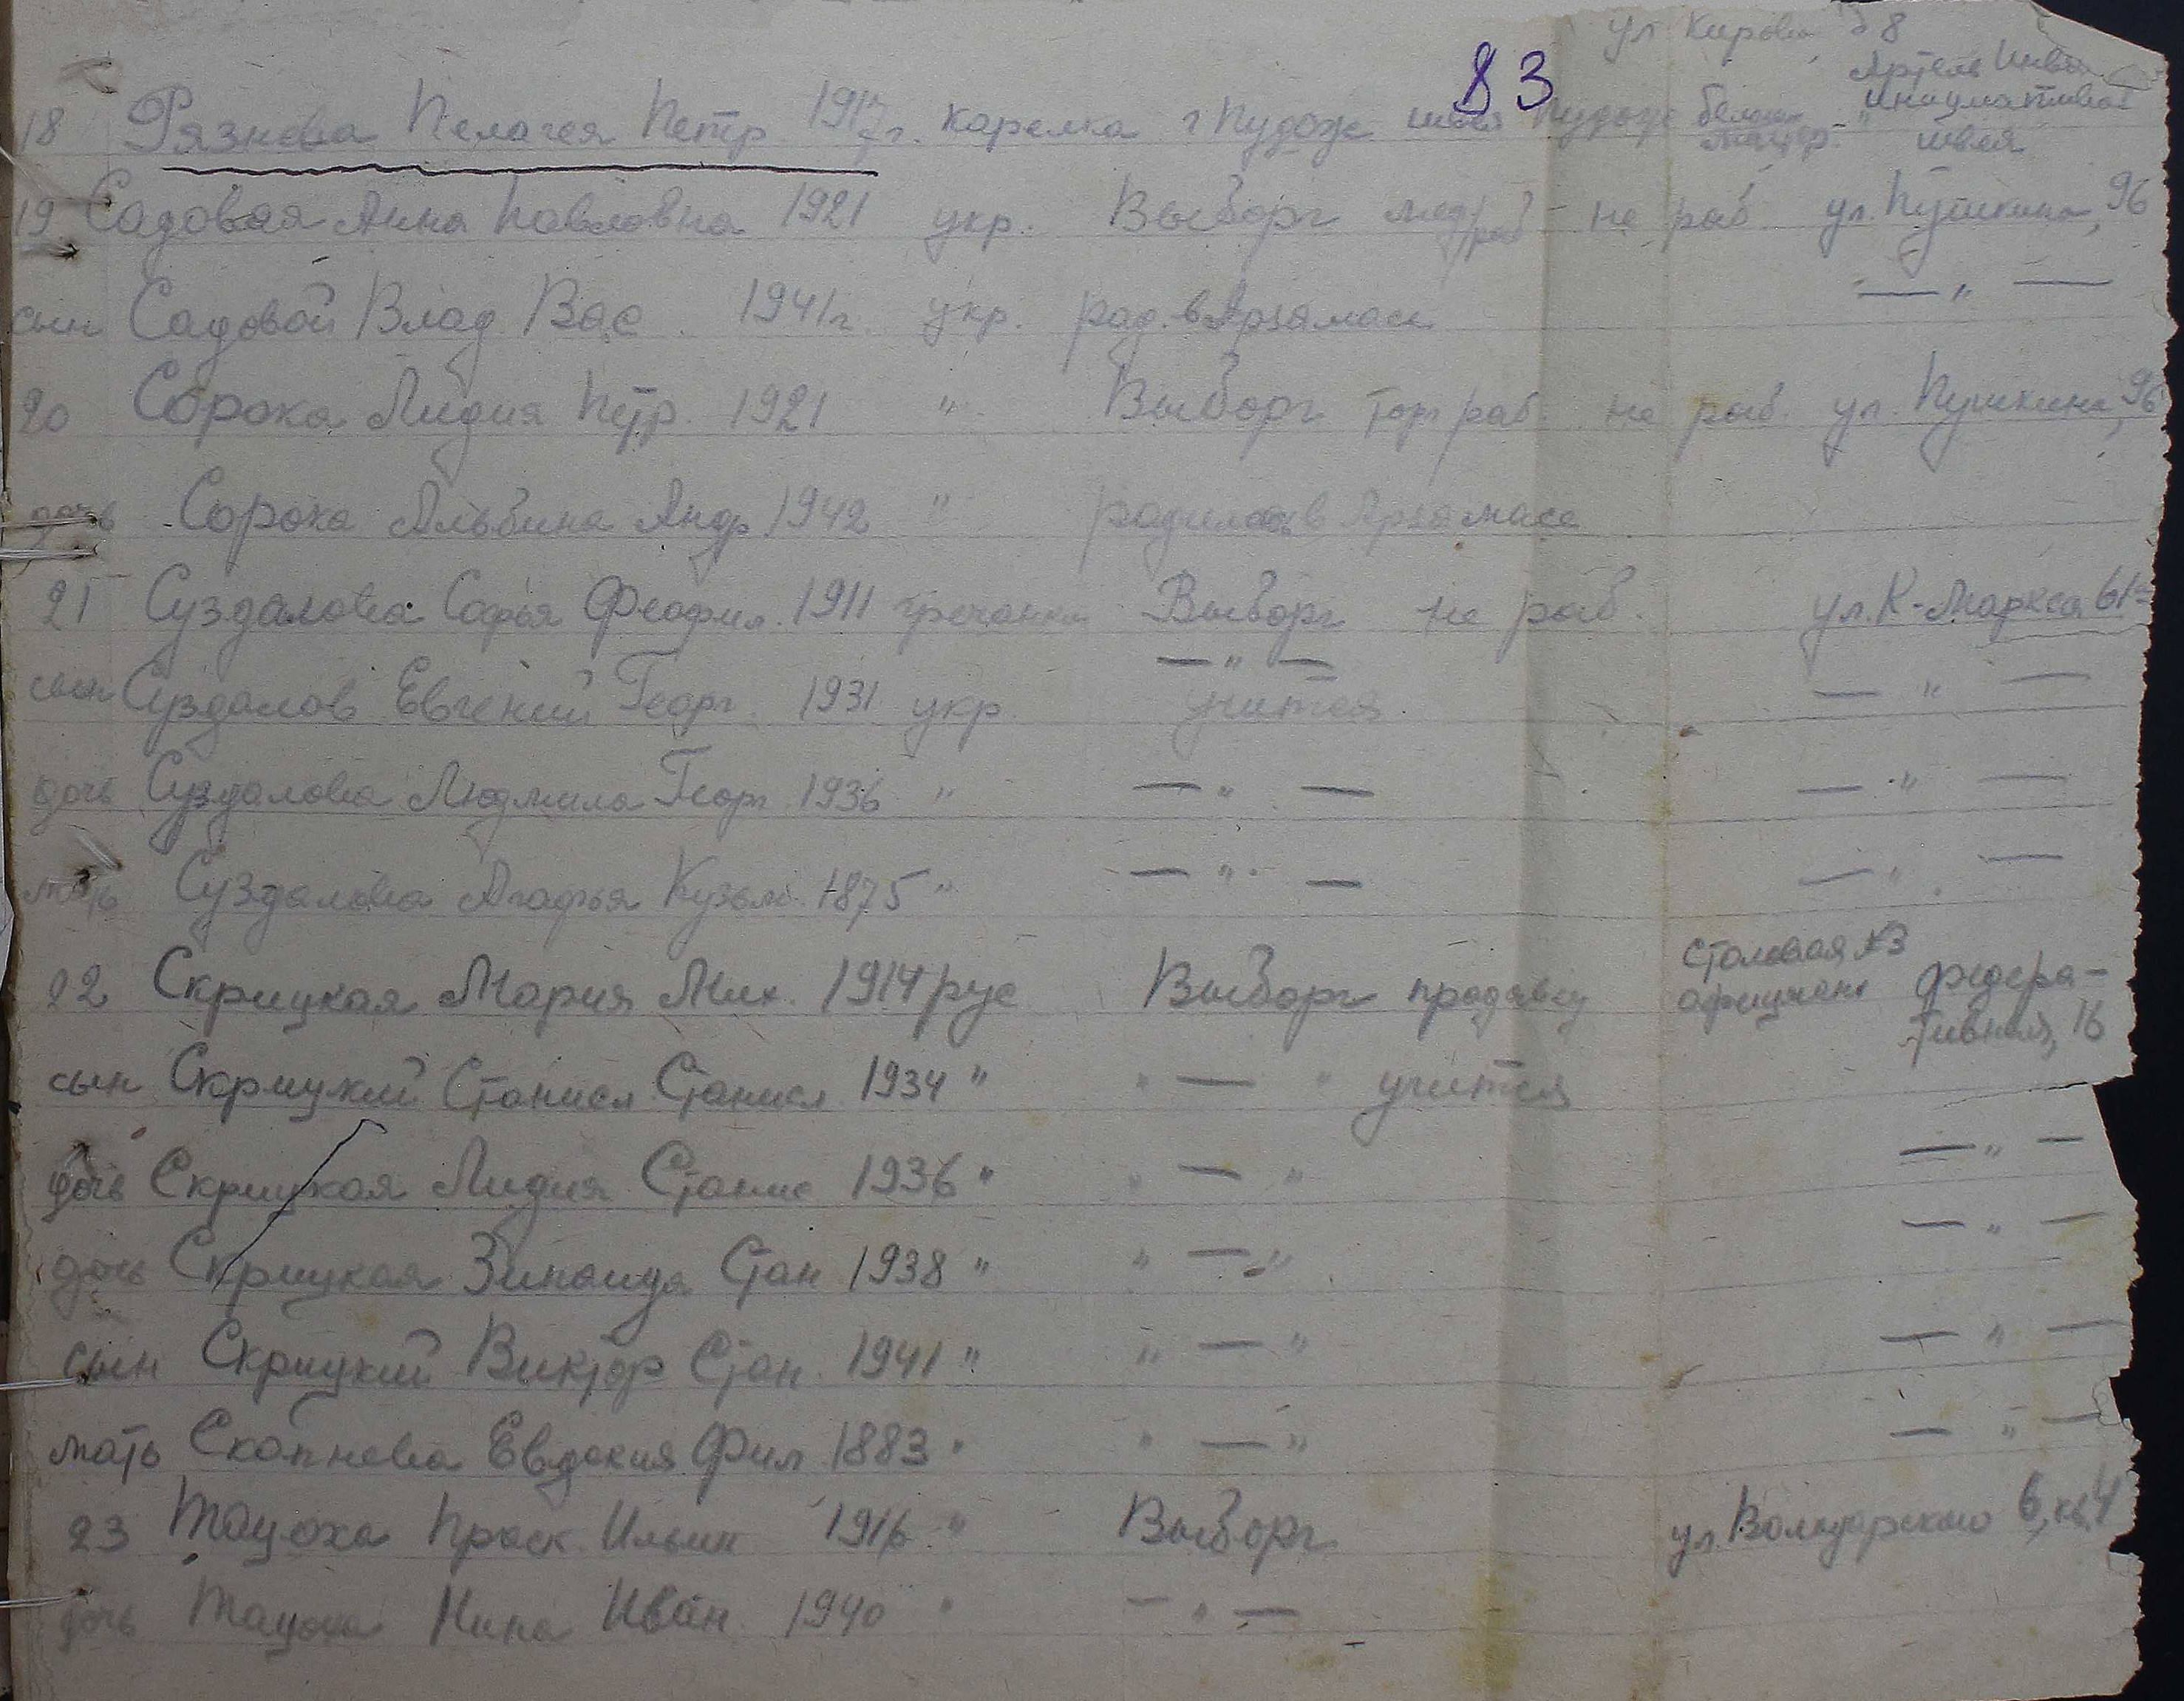 ул Кирова 58
83
Артель Инва
18 Рязнева Пелагея Петр 1917г. карелка г Пудож швея Пудож белош мастер. " инициатива
швея
19 Садовая Анна Павловна 1921 укр. Выборг мед/раб - не раб ул. Пушкина, 96
сын Садовой Влад Вас. 1941г. укр. род. в Арзамасе — " —
20 Сорока Лидия Петр. 1921 " Выборг торг раб. не раб. ул. Пушкина, 96
дочь Сорока Альбина Андр 1942 " родилась в Арзамасе
21 Суздалова Софья Феофил. 1911 гречанка Выборг не раб. ул. К-Маркса 61
— " —
сын Суздалов Евгений Георг. 1931 укр. учится — " —
дочь Суздалова Людмила Георг. 1936 " — " — — " —
мать Суздалова Агафья Кузьм. 1875 " — " — — " —
столовая №3
22 Скрицкая Мария Мих. 1914 рус Выборг продавец официант Федера-
тивная, 16
сын Скрицкий Станисл Станисл 1934 " " — " учится
дочь Скрицкая Лидия Станис 1936 " " — " — " —
дочь Скрицкая Зинаида Стан 1938 " " — " — " —
сын Скрицкий Виктор Стан. 1941 " " — " — " —
мать Скапнева Евдокия Фил 1883 " " — " — " —
23 Тацоха Праск. Ильин 1916 " Выборг ул Володарского 6, кв 4
дочь Тацоха Нина Иван. 1940 " — " —